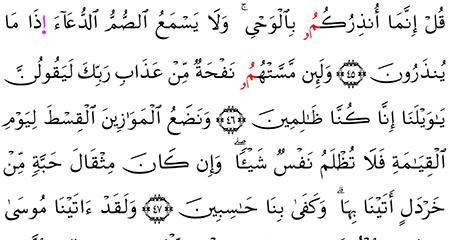 قُلْ إِنَّمَا أُنذِرُكُمُۥ بِالْوَحْىِ ۚ وَلَا يَسْمَعُ الصُّمُّ الدُّعَآءَ إِذَا مَا
يُنذَرُونَ ۝٤٥ وَلَئِن مَّسَّتْهُمُۥ نَفْحَةٌ مِّنْ عَذَابِ رَبِّكَ لَيَقُولُنَّ
يَـٰوَيْلَنَآ إِنَّا كُنَّا ظَـٰلِمِينَ ۝٤٦ وَنَضَعُ الْمَوَٰزِينَ الْقِسْطَ لِيَوْمِ
الْقِيَـٰمَةِ فَلَا تُظْلَمُ نَفْسٌ شَيْـًٔا ۖ وَإِن كَانَ مِثْقَالَ حَبَّةٍ مِّنْ
خَرْدَلٍ أَتَيْنَا بِهَا ۗ وَكَفَىٰ بِنَا حَـٰسِبِينَ ۝٤٧ وَلَقَدْ ءَاتَيْنَا مُوسَىٰ